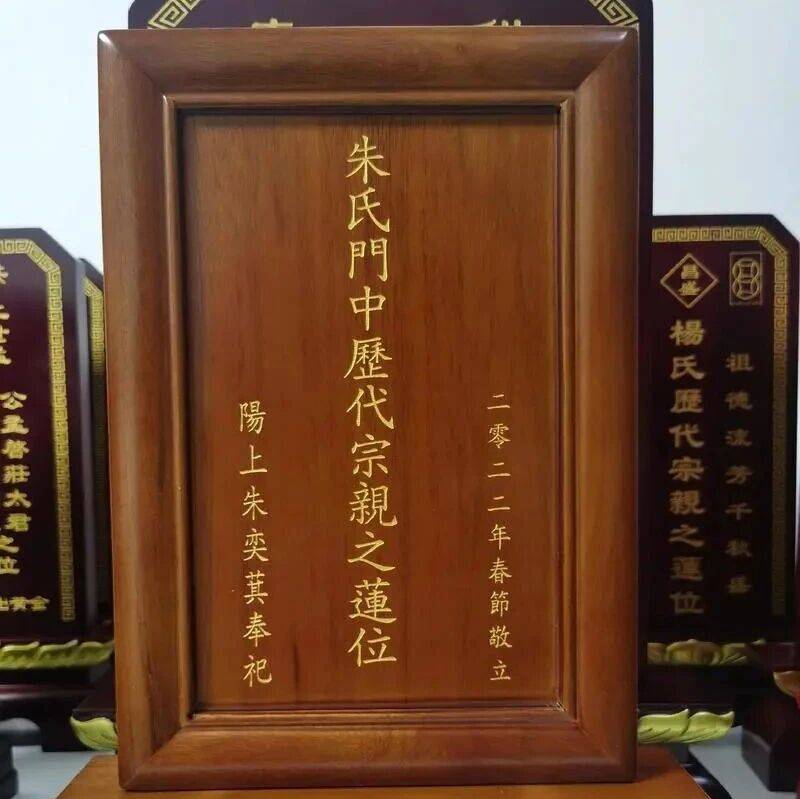 朱氏門中歷代宗親之蓮位
二零二二年春節敬立
陽上朱奕萁奉祀
昌盛
楊氏歷代宗親之蓮位
祖德流芳千秋盛
公孟啓莊太君
之位
黃金